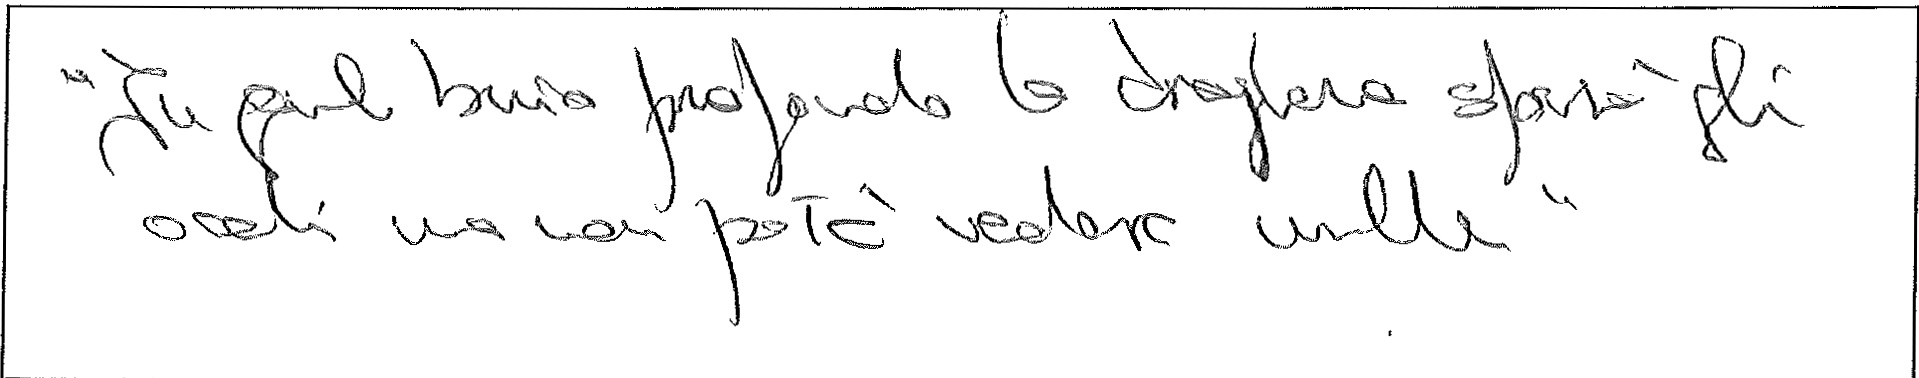 "In quel buio profondo la draghera sforzò gli
occhi ma non potè vedere nulla"